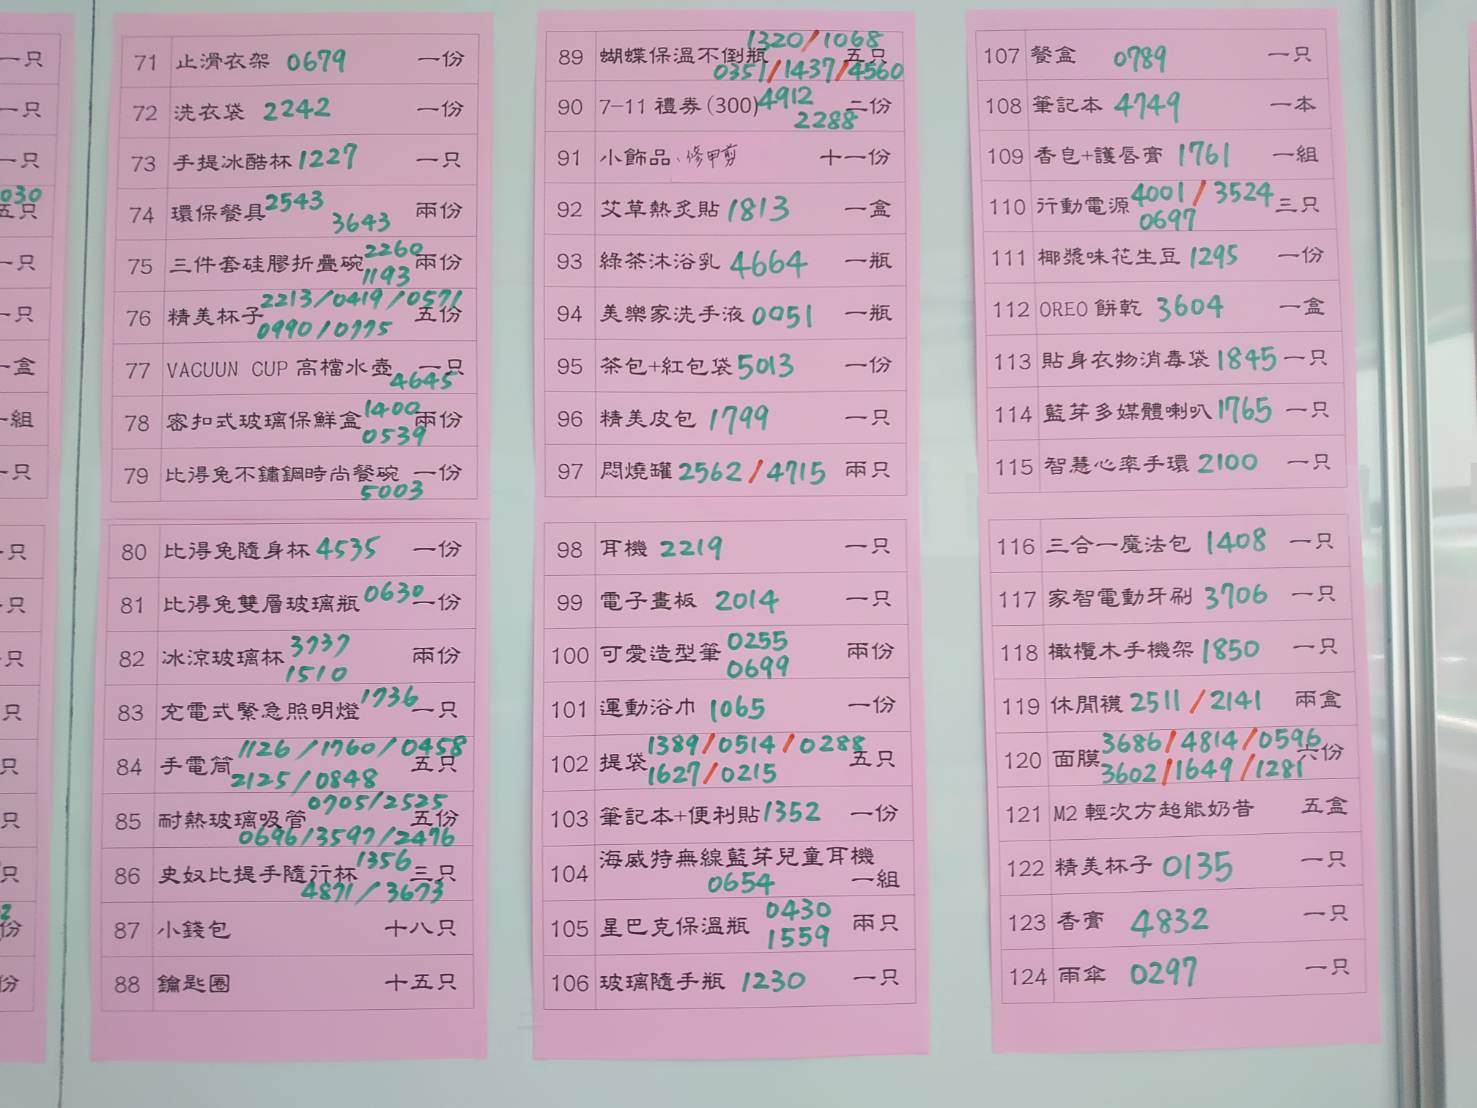 一只
一只
一只
030
五只
一只
一只
一盒
一組
一只
一只
一只
一只
只
只
只
只
2
份
份
71 止滑衣架 0679 一份
72 洗衣袋 2242 一份
73 手提冰酷杯 1227 一只
74 環保餐具 2543 兩份
3643
75 三件套硅膠折疊碗 2260 兩份
1193
76 精美杯子 2213/0419/0571 五份
0990/0775
77 VACUUN CUP 高檔水壺 一只
4645
78 密扣式玻璃保鮮盒 1400 兩份
0539
79 比得兔不鏽鋼時尚餐碗 一份
5003
80 比得兔隨身杯 4535 一份
81 比得兔雙層玻璃瓶 0630 一份
82 冰涼玻璃杯 3737 兩份
1510
83 充電式緊急照明燈 1736 一只
84 手電筒 1126/1760/0458 五只
2125/0848
85 耐熱玻璃吸管 0705/2525 五份
0696/3597/2476
86 史奴比提手隨行杯 1356 三只
4871/3673
87 小錢包 十八只
88 鑰匙圈 十五只
89 蝴蝶保溫不倒瓶 1320/1068 五只
0351/1437/4560
90 7-11 禮券(300) 4912 二份
2288
91 小飾品、修甲剪 十一份
92 艾草熱炙貼 1813 一盒
93 綠茶沐浴乳 4664 一瓶
94 美樂家洗手液 0051 一瓶
95 茶包+紅包袋 5013 一份
96 精美皮包 1799 一只
97 悶燒罐 2562/4715 兩只
98 耳機 2219 一只
99 電子畫板 2014 一只
100 可愛造型筆 0255 兩份
0699
101 運動浴巾 1065 一份
102 提袋 1389/0514/0288 五只
1627/0215
103 筆記本+便利貼 1352 一份
104 海威特無線藍芽兒童耳機
0654 一組
105 星巴克保溫瓶 0430 兩只
1559
106 玻璃隨手瓶 1230 一只
107 餐盒 0789 一只
108 筆記本 4749 一本
109 香皂+護唇膏 1761 一組
110 行動電源 4001/3524 三只
0697
111 椰漿味花生豆 1295 一份
112 OREO 餅乾 3604 一盒
113 貼身衣物消毒袋 1845 一只
114 藍芽多媒體喇叭 1765 一只
115 智慧心率手環 2100 一只
116 三合一魔法包 1408 一只
117 家智電動牙刷 3706 一只
118 橄欖木手機架 1850 一只
119 休閒襪 2511/2141 兩盒
120 面膜 3686/4814/0596 六份
3602/1649/1281
121 M2 輕次方超能奶昔 五盒
122 精美杯子 0135 一只
123 香膏 4832 一只
124 雨傘 0297 一只